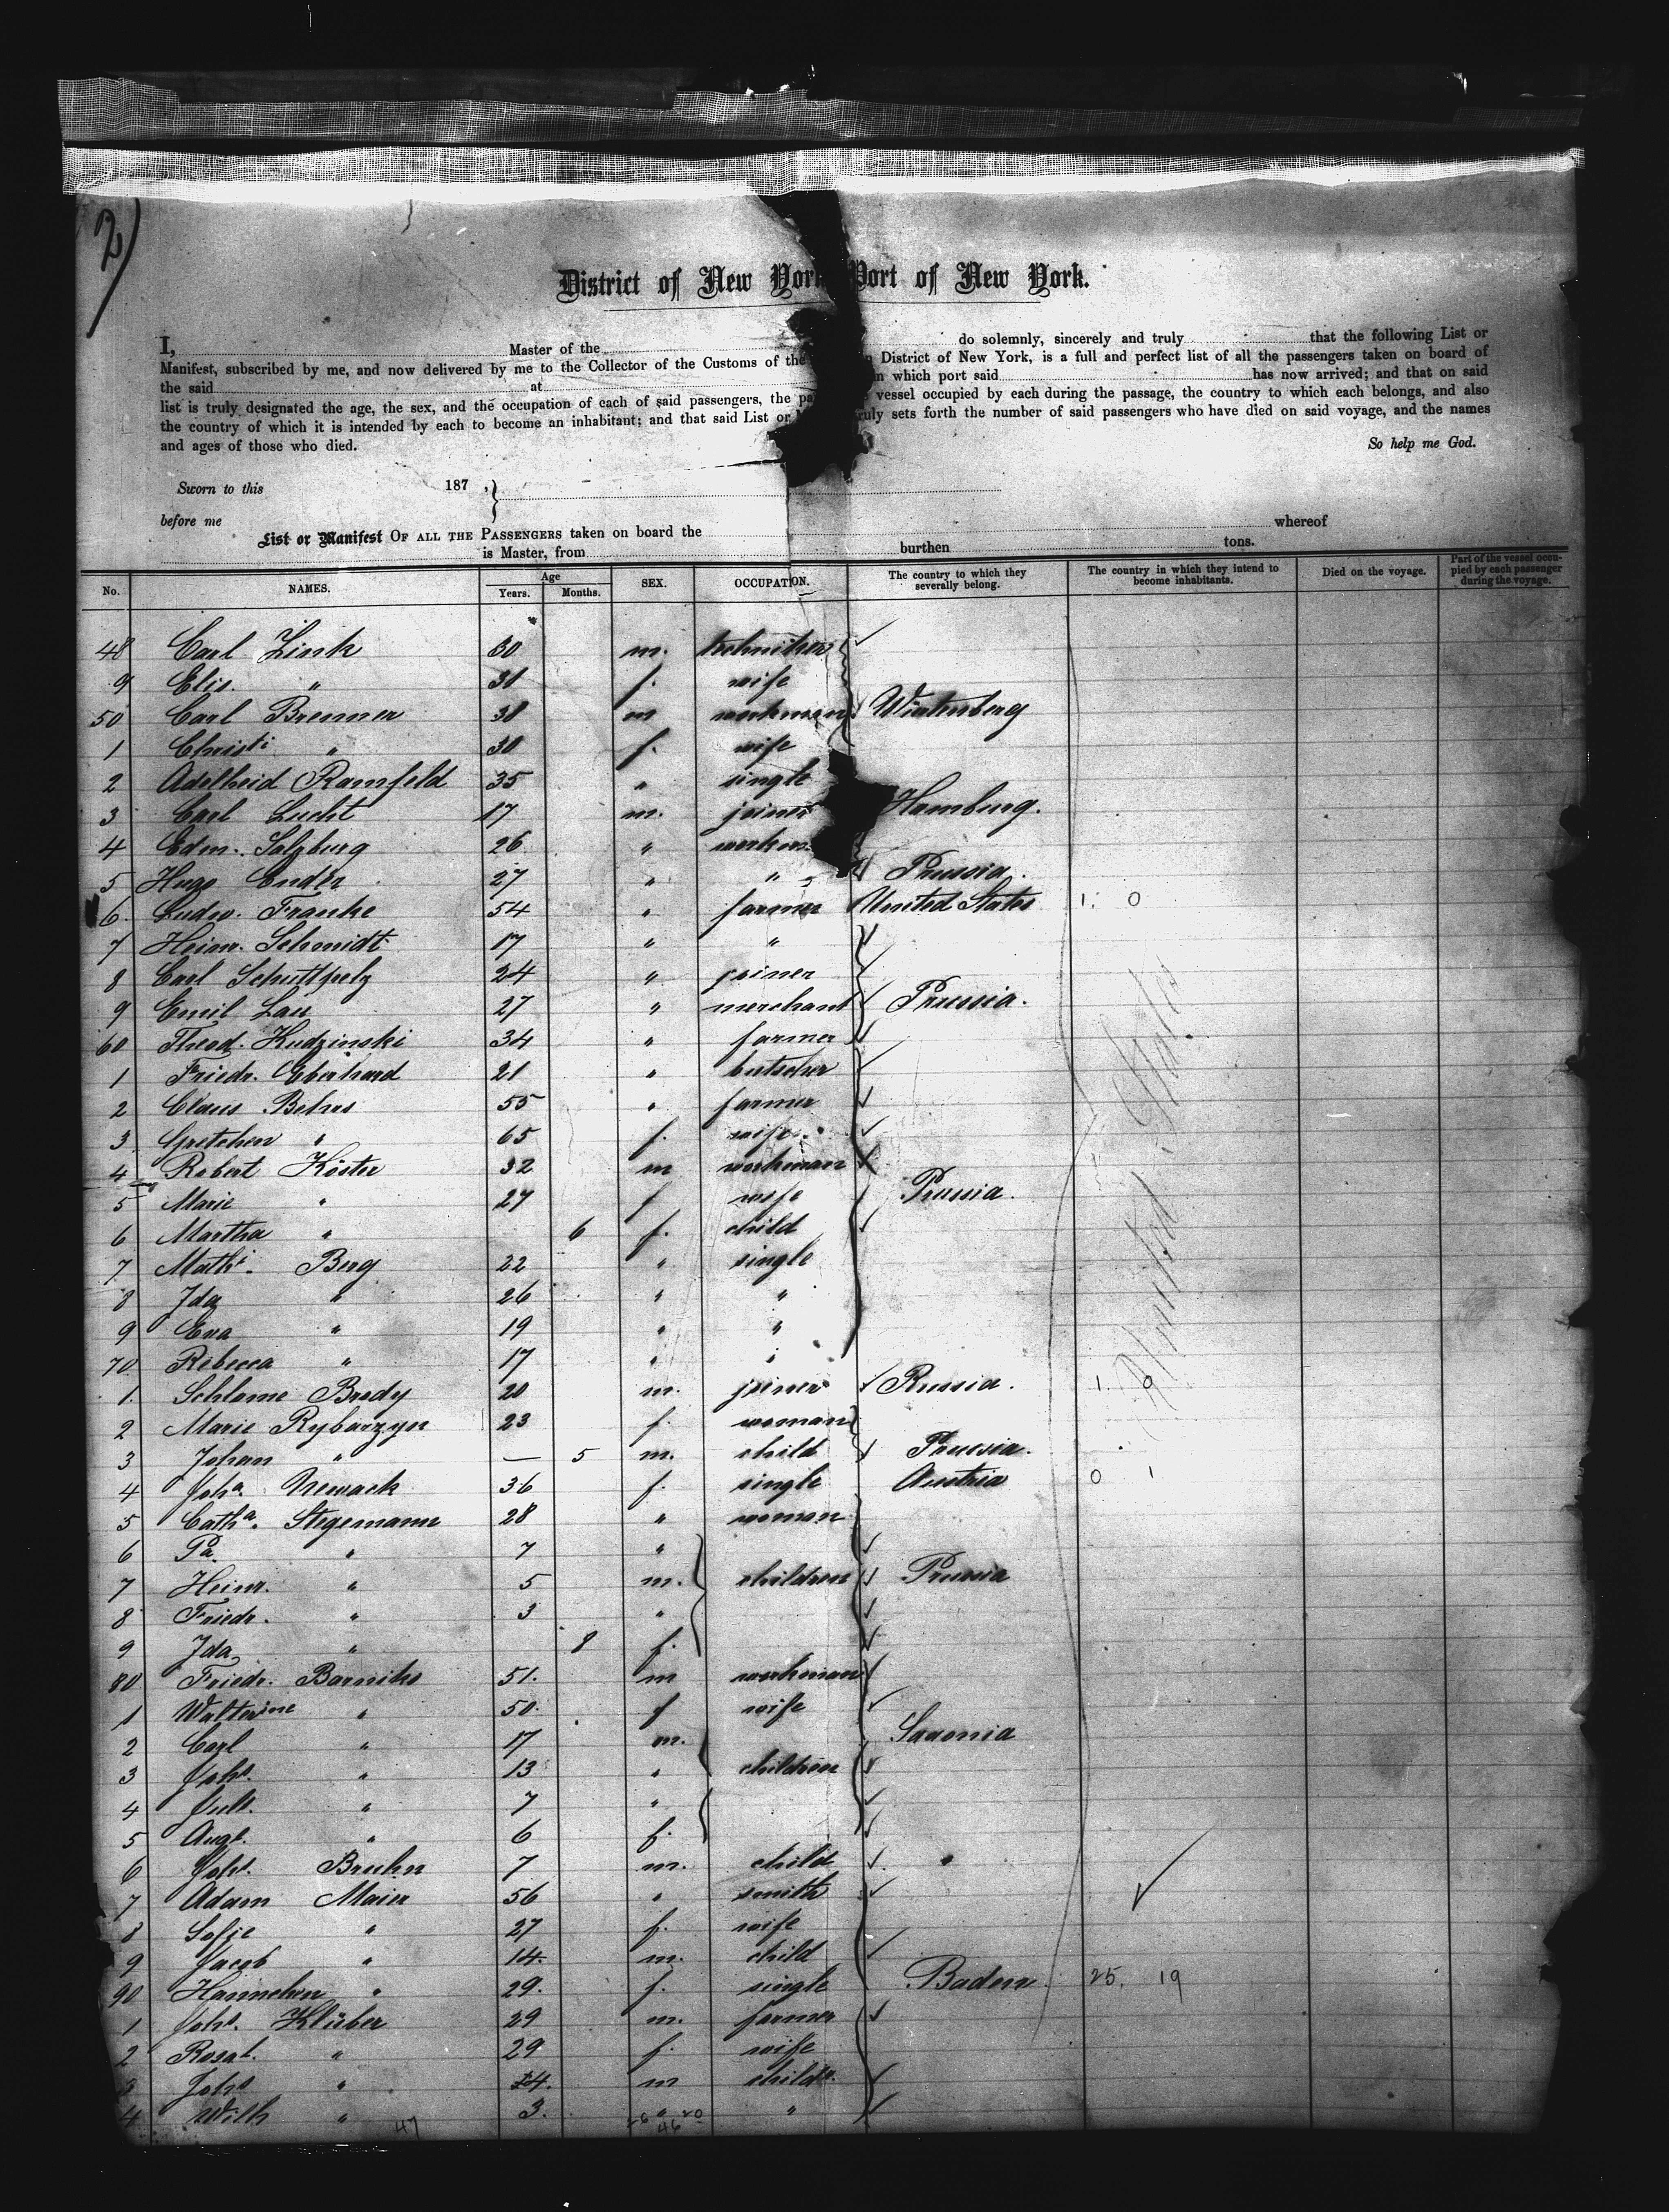 2)
District of New York Port of New York.
I, Master of the do solemnly, sincerely and truly that the following List or
Manifest, subscribed by me, and now delivered by me to the Collector of the Customs of the District of New York, is a full and perfect list of all the passengers taken on board of
the said at which port said has now arrived; and that on said
list is truly designated the age, the sex, and the occupation of each of said passengers, the vessel occupied by each during the passage, the country to which each belongs, and also
the country of which it is intended by each to become an inhabitant; and that said List or truly sets forth the number of said passengers who have died on said voyage, and the names
and ages of those who died. So help me God.
Sworn to this 187 ,
before me
List or Manifest OF ALL THE PASSENGERS taken on board the whereof
is Master, from burthen tons.
No. NAMES. Age Years. Months. SEX. OCCUPATION. The country to which they severally belong. The country in which they intend to become inhabitants. Died on the voyage. Part of the vessel occupied by each passenger during the voyage.
48 Carl Link 30 m. techniker
9 Elis. " 31 f. wife
50 Carl Brenner 38 m workman Wirtenberg
1 Christi " 30 f. wife
2 Adelheid Ramfeld 35 " single
3 Carl Lucht 17 m. joiner Hamburg.
4 Edm. Salzburg 26 "
5 Hugo Ender 27 " " Prussia.
6. Ludw. Franke 54 " farmer United States 1. 0
7 Heinr. Schmidt 17 " "
8 Carl Schuttpelz 24 " joiner
9 Emil Lau 27 " merchant Prussia.
60 Theod. Kudzinski 34 " farmer
1 Friedr. Eberhard 21 " butscher
2 Claus Behrs 55 " farmer
3 Gretchen " 65 f. wife
4 Robert Köster 32 m workman
5 Marie " 27 f wife Prussia.
6 Martha " 6 f. child
7 Mathi. Berg 22 " single
8 Ida " 26 " "
9 Eva " 19 " "
70 Rebecca " 17 " "
1. Schlome Brody 20 m. joiner Russia. 1. 0
2 Marie Rybarzyn 23 f. woman
3 Johan " — 5 m. child Prussia.
4 Joha. Newack 36 f. single Austria 0 1
5 Catha. Stegemann 28 " woman
6 Pa. " 7 "
7 Heinr. " 5 m. children Prussia
8 Friedr. " 3 "
9 Ida " 8 f.
80 Friedr. Barniks 51. m workman
1 Walterine " 50. f wife
2 Carl " 17 m. Saxonia
3 Johs. " 13 " children
4 Juls. " 7 "
5 Augt. " 6 f.
6 Johs. Bruhn 7 m. child
7 Adam Maier 56 " smith
8 Sofie " 27 f. wife
9 Jacob " 14. m. child
90 " 29. f. single Baden 25. 19
1 Johs. Klüber 29 m. farmer
2 Rosal. " 29 f. wife
3 Johs " m
4 Wilh " 3. " "
47 26 20
46
United States